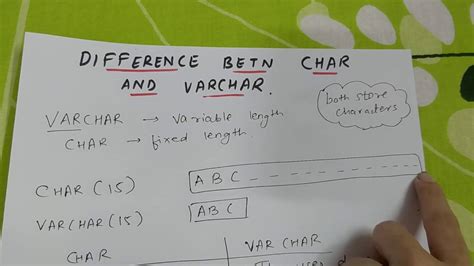 DIFFERENCE BETN CHAR
AND VARCHAR.
both store
characters
VARCHAR → Variable length
CHAR → fixed length.
CHAR (15)
ABC - - - - - - - - - - - -
VARCHAR (15)
ABC
CHAR
VARCHAR